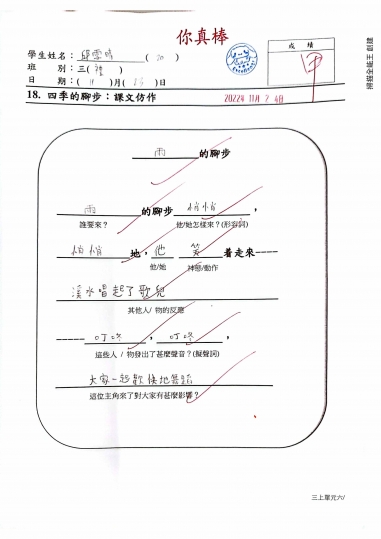 你真棒
學生姓名：鄒雲晴 (20)
成績
甲
班　　別：三(禮)
Excellent
日　　期：(11)月(23)日
18. 四季的腳步：課文仿作
2022年11月24日
雨的腳步
雨的腳步悄悄，
誰要來？ 他/她怎樣來？(形容詞)
悄悄地，他笑着走來----
他/她 神態/動作
溪水唱起了歌兒
其他人/ 物的反應
-----叮咚，叮咚。
這些人 / 物發出了甚麼聲音？(擬聲詞)
大家一起歡快地舞蹈
這位主角來了對大家有甚麼影響？
三上單元六/
掃描全能王 創建